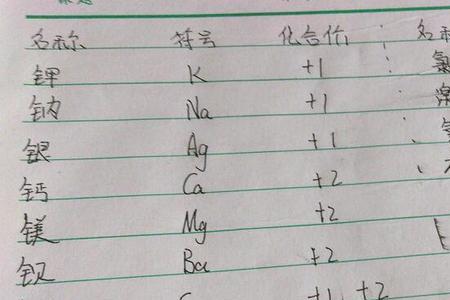 名称 符号 化合价 名称
钾 K +1 氯
钠 Na +1
银 Ag +1
钙 Ca +2
镁 Mg +2
钡 Ba +2
+1 +2